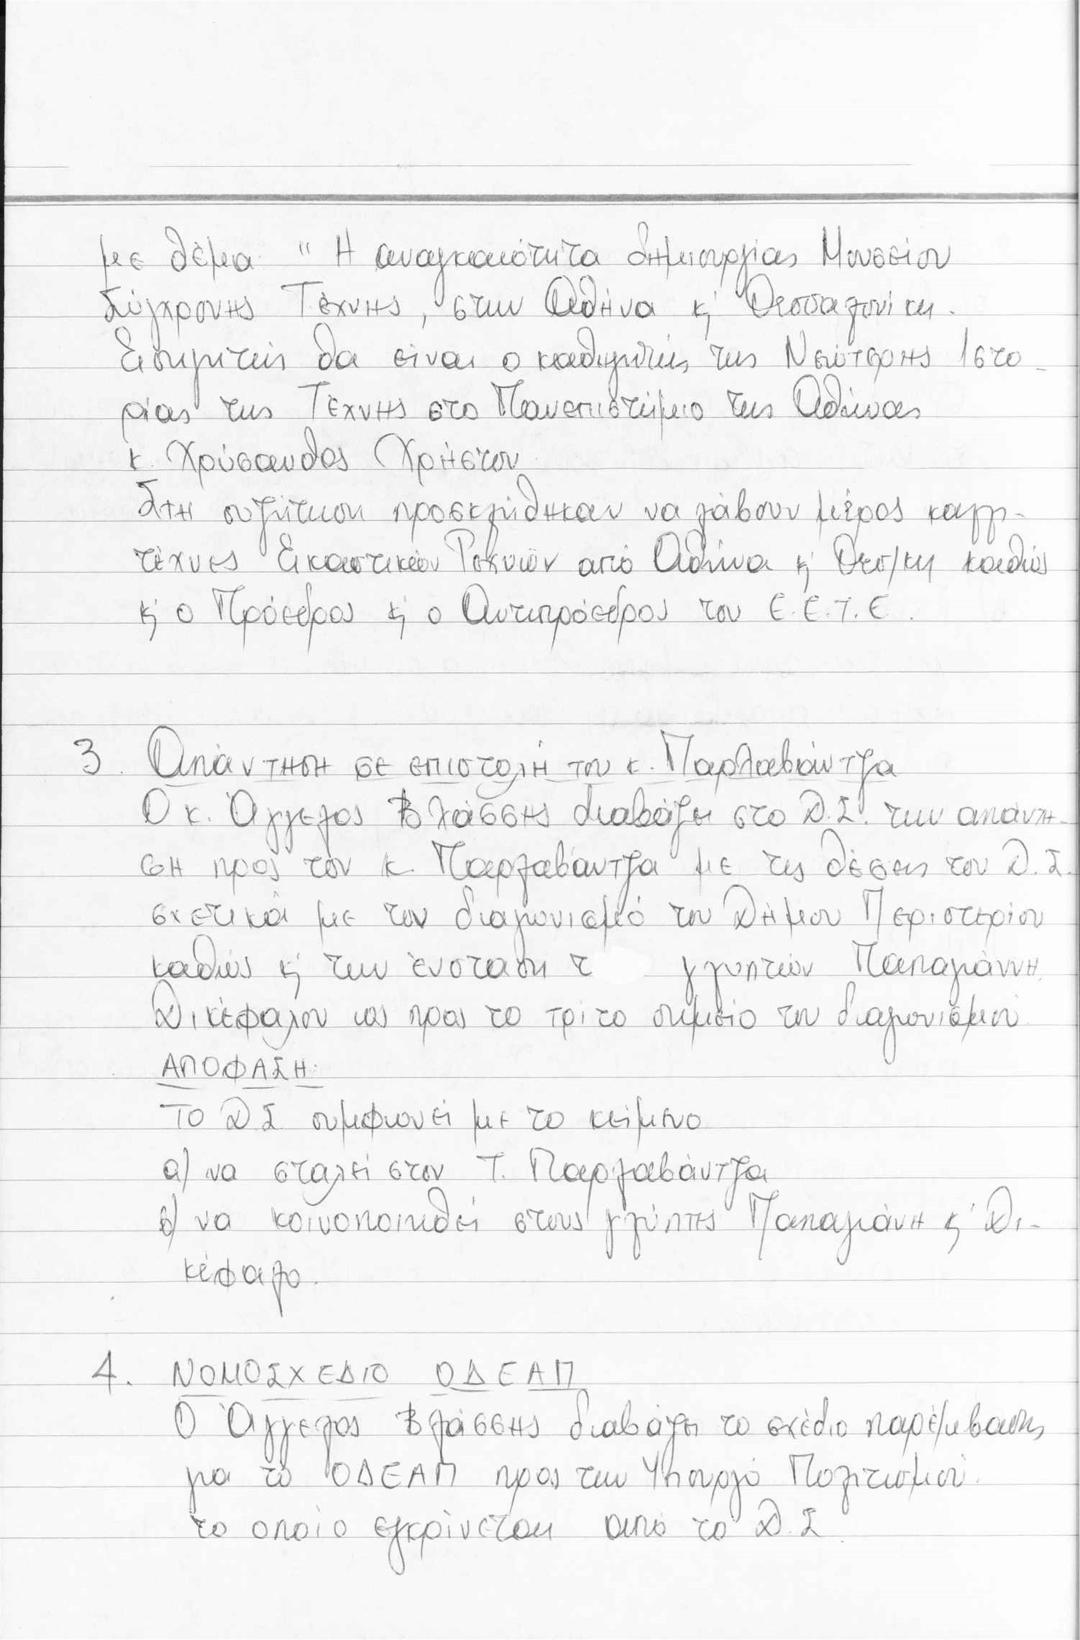 με θέμα " Η αναγκαιότητα δημιουργίας Μουσείου
Σύγχρονης Τέχνης, στην Αθήνα κ' Θεσσαλονίκη.
Εισηγητής θα είναι ο καθηγητής της Νεώτερης Ιστο-
ρίας της Τέχνης στο Πανεπιστήμιο της Αθήνας
κ. Χρύσανθος Χρήστου
Στη συζήτηση προσκλήθηκαν να λάβουν μέρος καλλι-
τέχνες Εικαστικών Τεχνών από Αθήνα κ' Θεσ/κη καθώς
κ' ο Πρόεδρος κ' ο Αντιπρόεδρος του Ε.Ε.Τ.Ε.
3. Απάντηση σε επιστολή του κ. Παρλαβάντζα
Ο κ. Άγγελος Βλάσσης διαβάζει στο Δ.Σ. την απάντη-
ση προς τον κ. Παρλαβάντζα με τις θέσεις του Δ.Σ.
σχετικά με τον διαγωνισμό του Δήμου Περιστερίου
καθώς κ' την ένσταση τ γλυπτών Παπαγιάννη
Δικέφαλου ως προς το τρίτο σημείο του διαγωνισμού
ΑΠΟΦΑΣΗ:
Το Δ.Σ συμφωνεί με το κείμενο
α) να σταλεί στον Τ. Παρλαβάντζα
β) να κοινοποιηθεί στους γλύπτες Παπαγιάνη κ' Δι-
κέφαλο.
4. ΝΟΜΟΣΧΕΔΙΟ ΟΔΕΑΠ
Ο Άγγελος Βλάσσης διαβάζει το σχέδιο παρέμβασης
για το ΟΔΕΑΠ προς την Υπουργό Πολιτισμού
το οποίο εγκρίνεται από το Δ.Σ